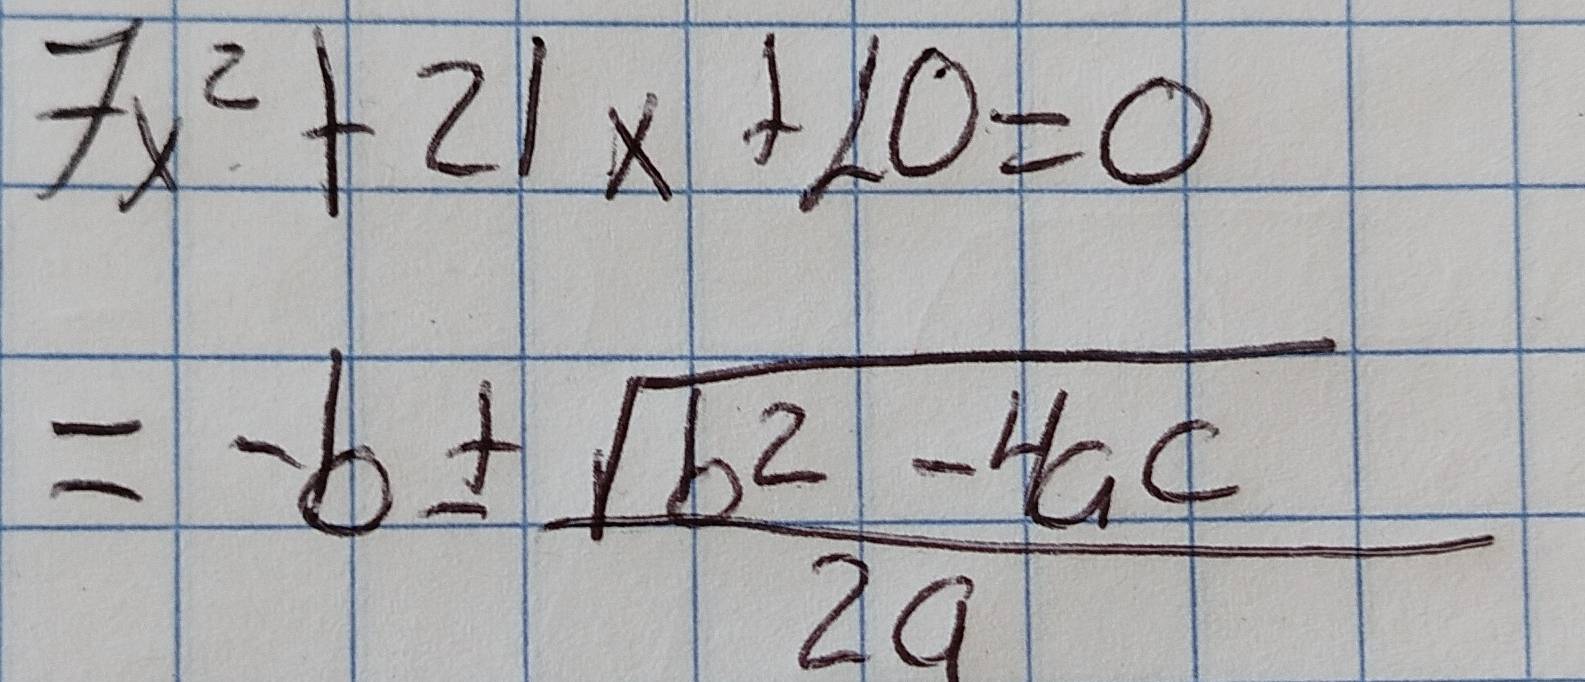 7x² + 21x + 20 = 0
= -b ± √b² - 4ac
2a